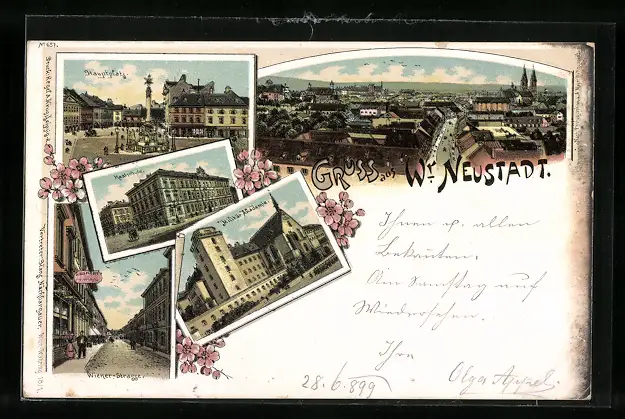 No 657.
Hauptplatz
Realschule.
Militär-Akademie.
Wiener-Strasse.
GRUSS aus Wr. NEUSTADT.
Ihnen u. allen
Bekannten.
Am Samstag auf
Wiedersehen.
Ihre
Olga Appel
28./6. 899